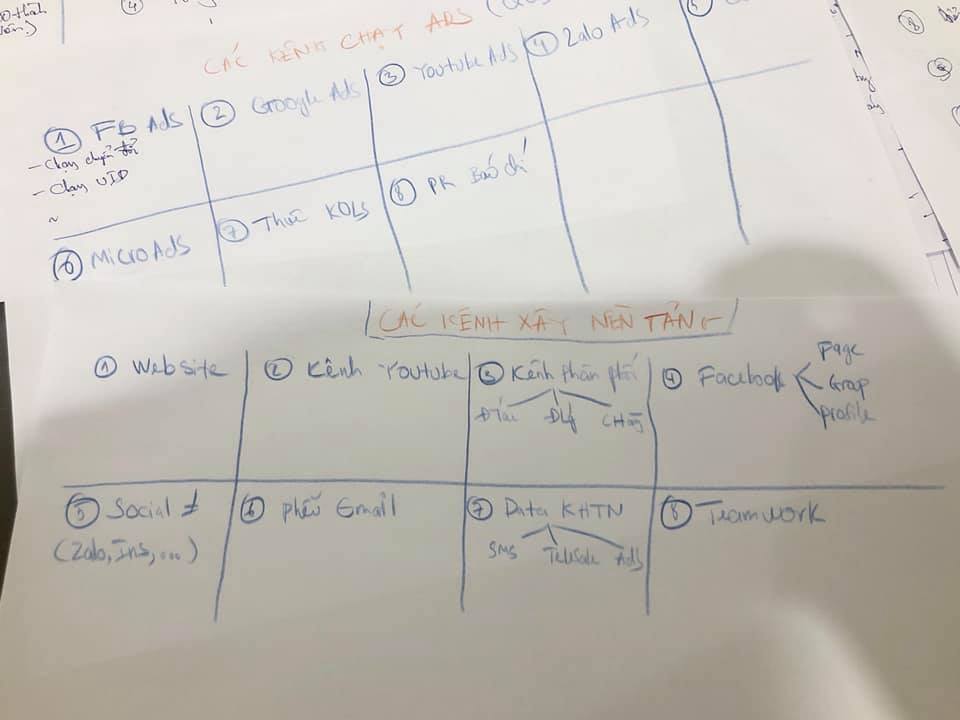 ④
CÁC KÊNH CHẠY ADS
① FB Ads
- Chạy chuyển đổi
- Chạy UID
~
② Google Ads
③ Youtube Ads
④ Zalo Ads
⑤
⑥ MicroAds
⑦ Thuê KOLs
⑧ PR Báo chí
CÁC KÊNH XÂY NỀN TẢNG
① Website
② Kênh Youtube
③ Kênh phân phối
Đtác ĐLý CHàng
④ Facebook
Page
Group
profile
⑤ Social ≠
(Zalo, Ins, ...)
⑥ phễu Gmail
⑦ Data KHTN
SMS Telesale Ads
⑧ Teamwork